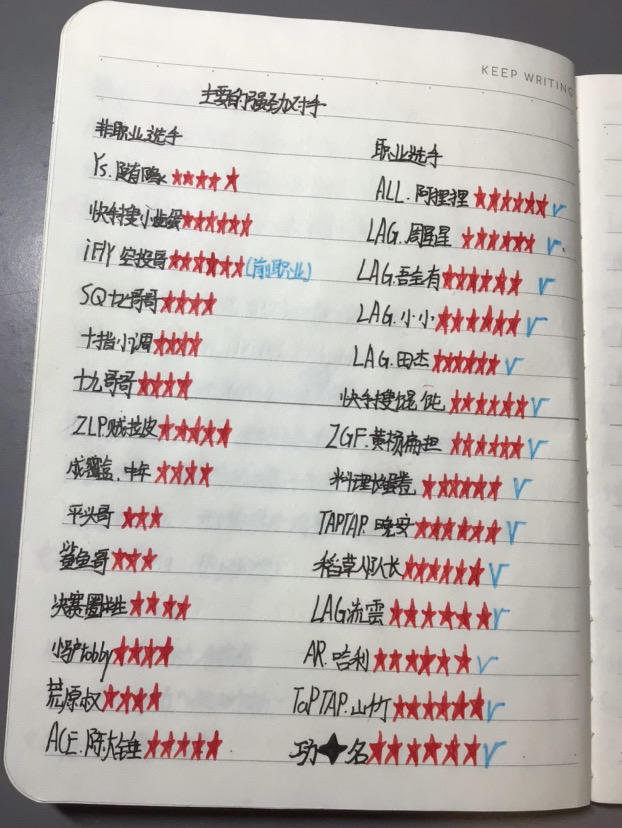 KEEP WRITING
主要的强劲对手
非职业选手
职业选手
Ys.随隐 ★★★★★
快手搜小血蛋★★★★★★
iFTY 空投哥★★★★★★(前职业)
SQ七哥哥★★★★
十指小调★★★★
十九哥哥★★★★
ZLP贼拉皮★★★★★
成蜜盒.中年★★★★
平头哥 ★★★
鲨鱼哥★★★
决赛圈医生★★★★
小驴tobby★★★★
荒原叔★★★★
ACE.陈大锤★★★★★
ALL.阿狸狸★★★★★★√
LAG.周星星★★★★★★√
LAG.吾主有★★★★★★√
LAG.小小★★★★★★√
LAG.田杰★★★★★★√
快手搜馄饨★★★★★★√
ZGF.黄杨扁担★★★★★★√
料理长蛋卷★★★★★★√
TAPTAP.晚安★★★★★★√
稻草人队长★★★★★★√
LAG流雲★★★★★★√
AR.哈利★★★★★★√
TaPTAP.山竹★★★★★★√
功✦名★★★★★★√